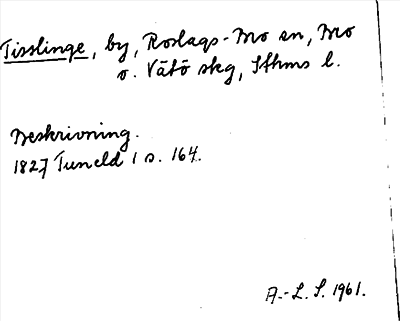 Tisslinge, by, Roslags-Mo sn, Mo
o. Vätö skg, Sthms l.
Beskrivning.
1827 Tuneld 1 s. 164.
A.-L. S. 1961.